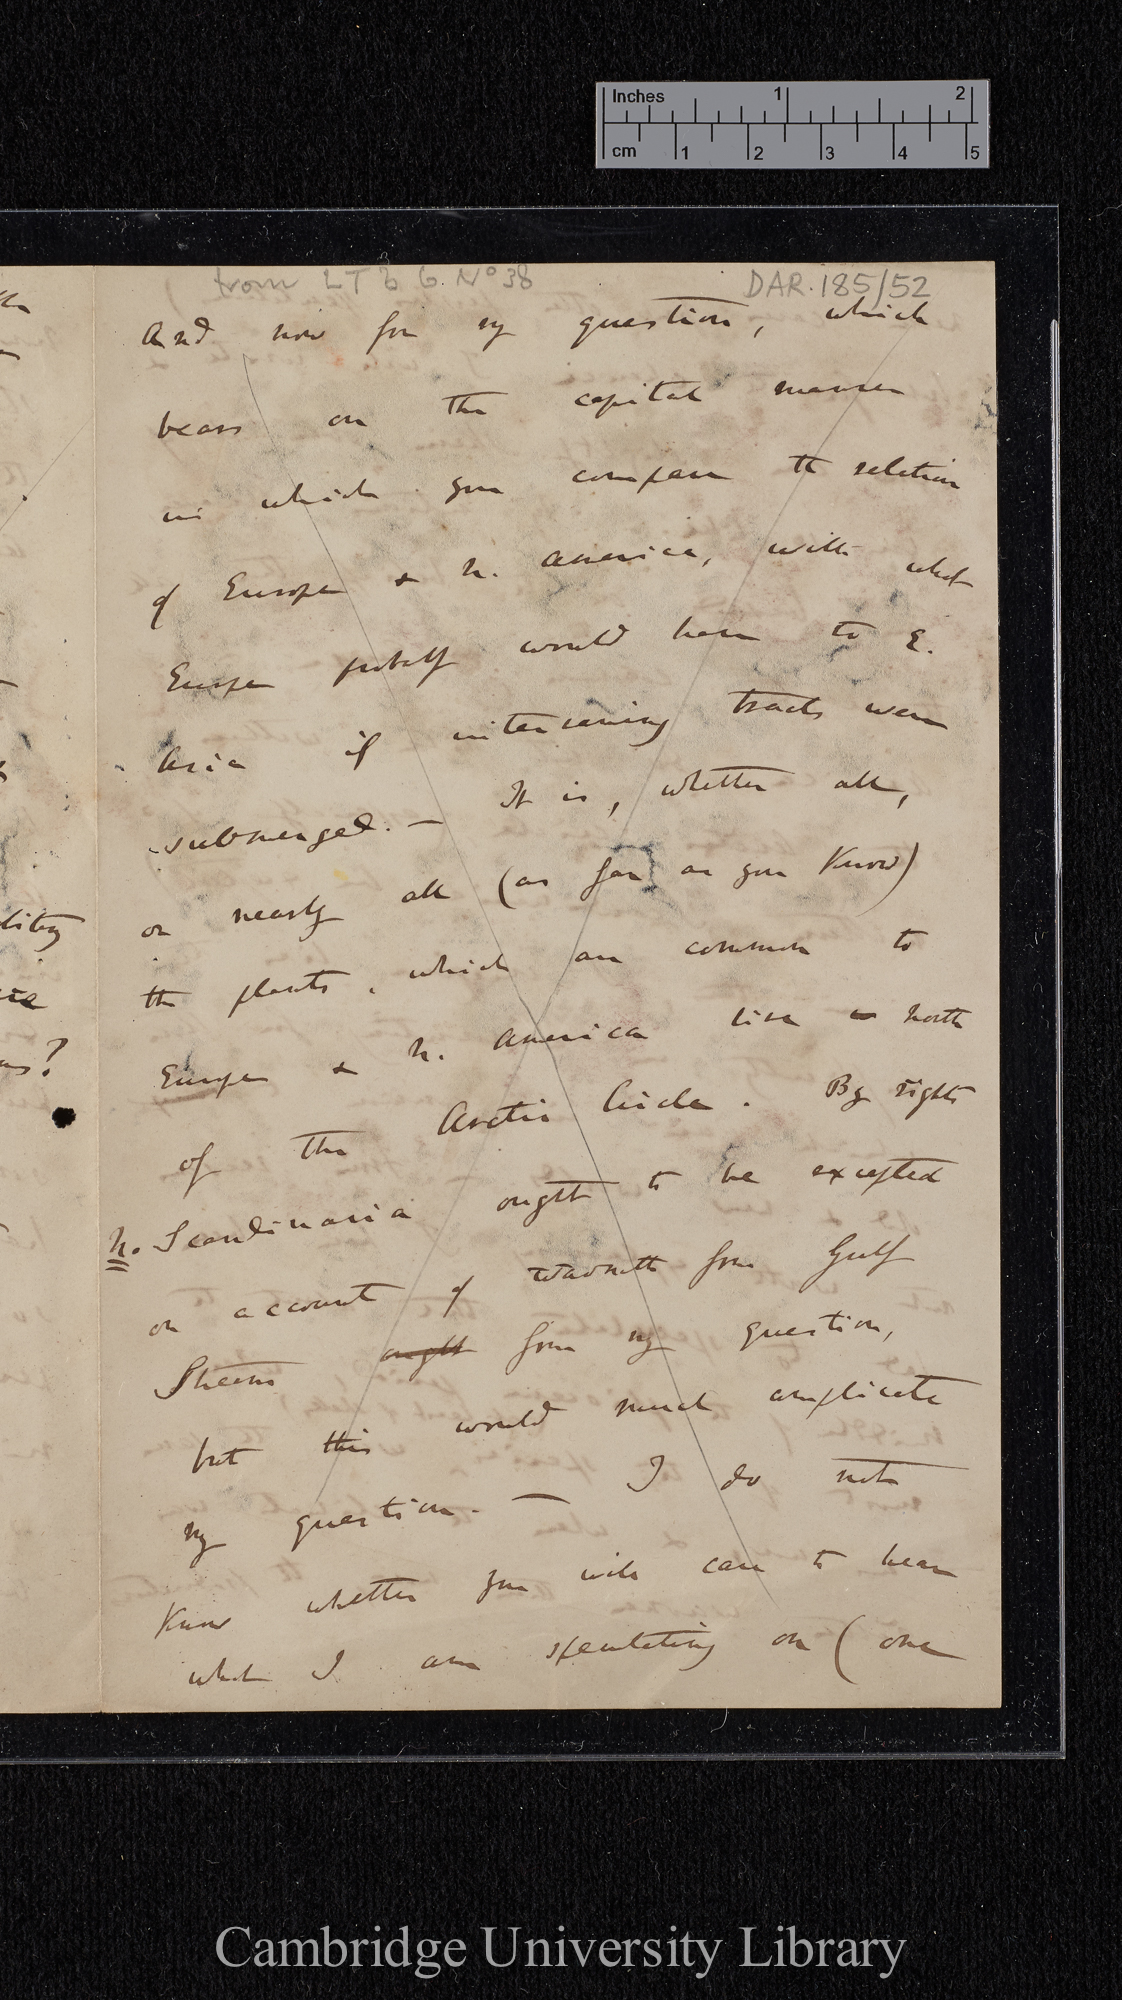 Inches 1 2
cm 1 2 3 4 5
from LT to G. No 38
DAR.185/52
And now for my question, which
bears on the capital manner
in which you compare the relation
of Europe & N. America, with what
Europe probably would have to E.
Asia if intervening tracts were
submerged. — It is, whether all,
or nearly all (as far as you know)
the plants, which are common to
Europe & N. America live north
of the Arctic Circle. By rights
N. Scandinavia ought to be excepted
on account of warmth from Gulf
Stream ought from my question,
but this would much complicate
my question. — I do not
know whether you will care to hear
what I am speculating on (one
lity
ns?
Cambridge University Library